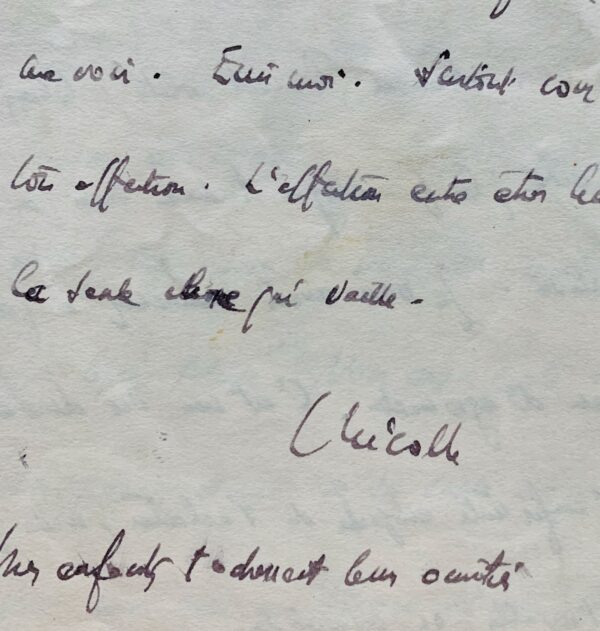 me voir. Écris moi. Surtout
ton affection. L'affection entre êtres
la seule chose qui vaille.
Nicolle
enfants t'adressent leurs amitiés